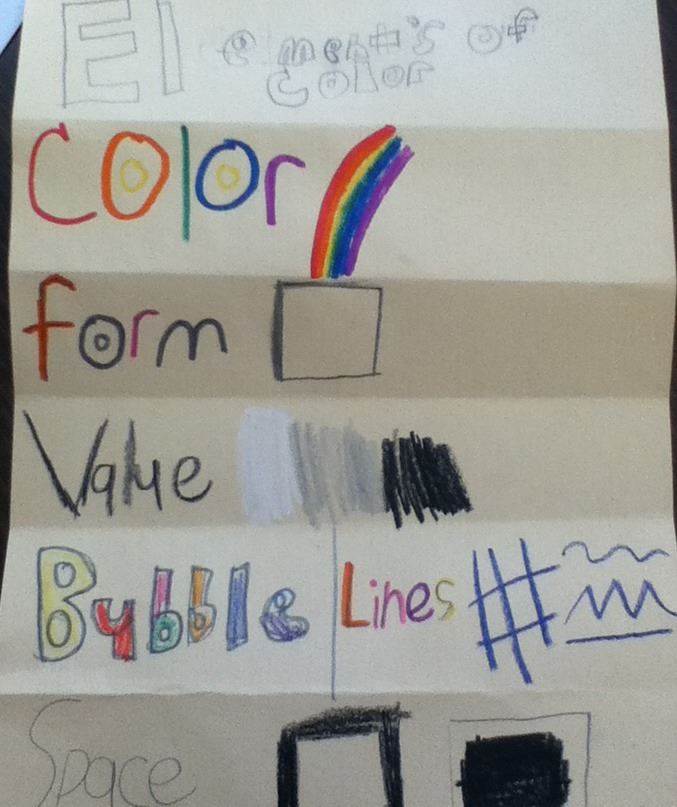 Element's of
Color
Color
form
Value
Bubble Lines
Space